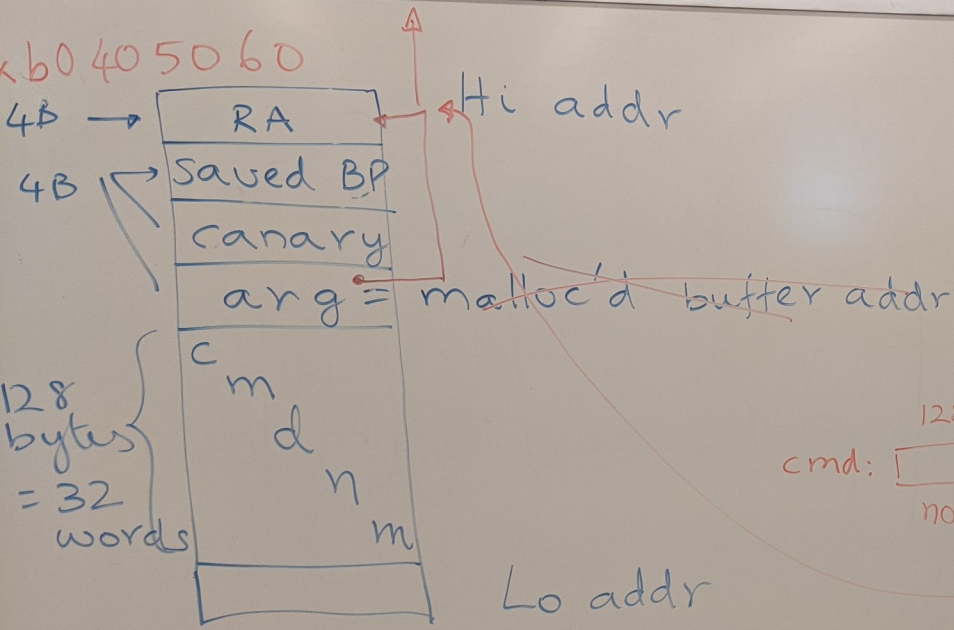 xb0405060
Hi addr
4B → RA
4B
Saved BP
canary
arg = malloc'd buffer addr
128
bytes
= 32
words
c
m
d
n
m
12
cmd:
no
Lo addr